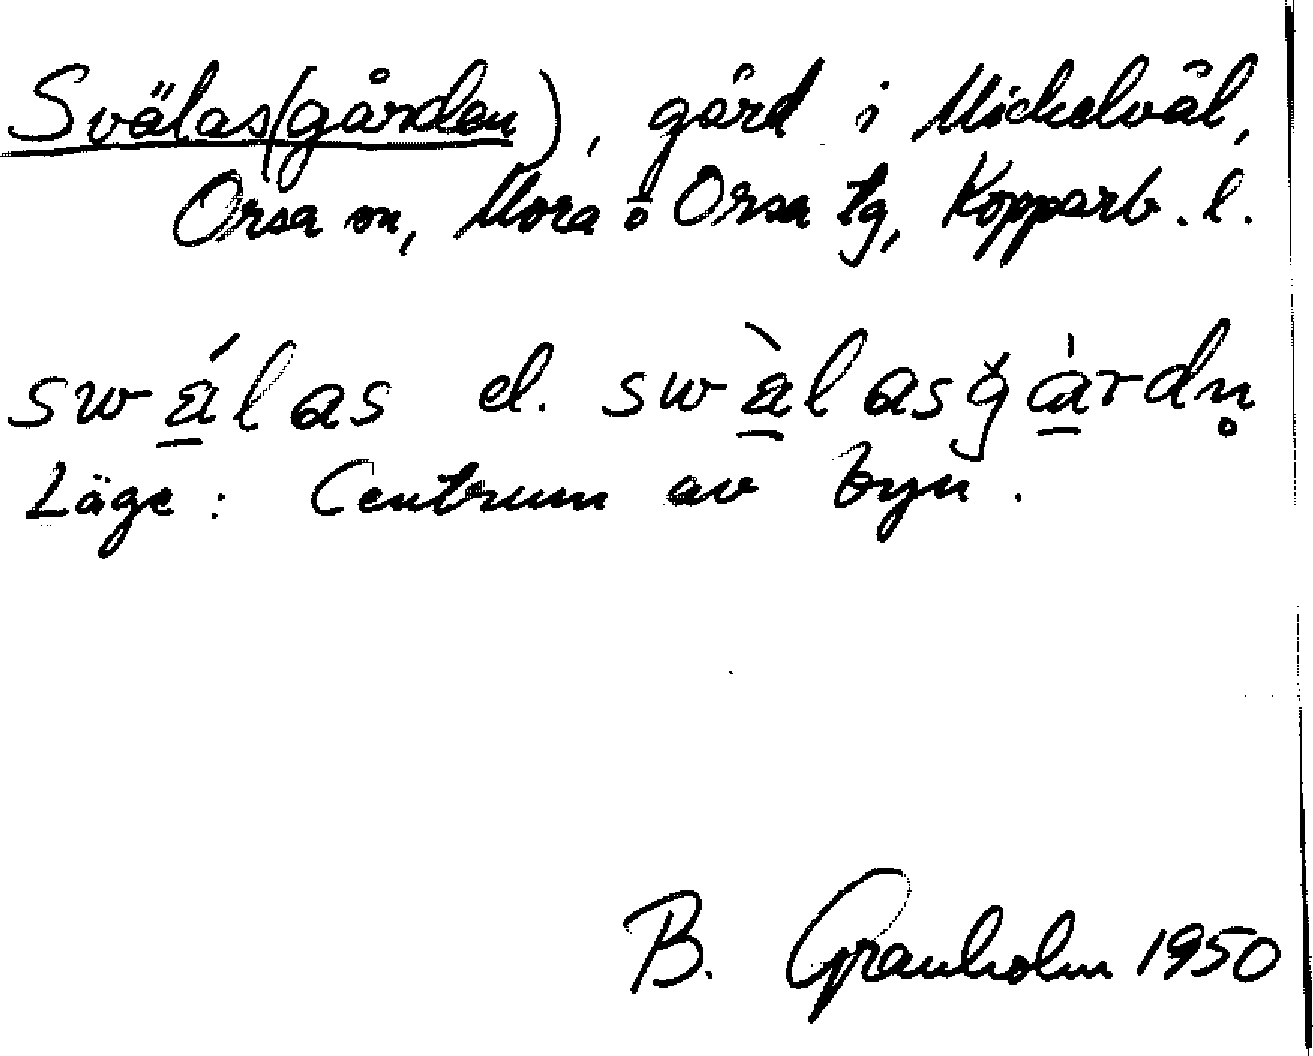 Svälas(gården), gård i Mickelvål,
Orsa sn, Mora o Orsa tg, Kopparb. l.
swá̱las el. swà̱lasgȧ̱rdn̥
Läge: Centrum av byn.
B. Granholm 1950